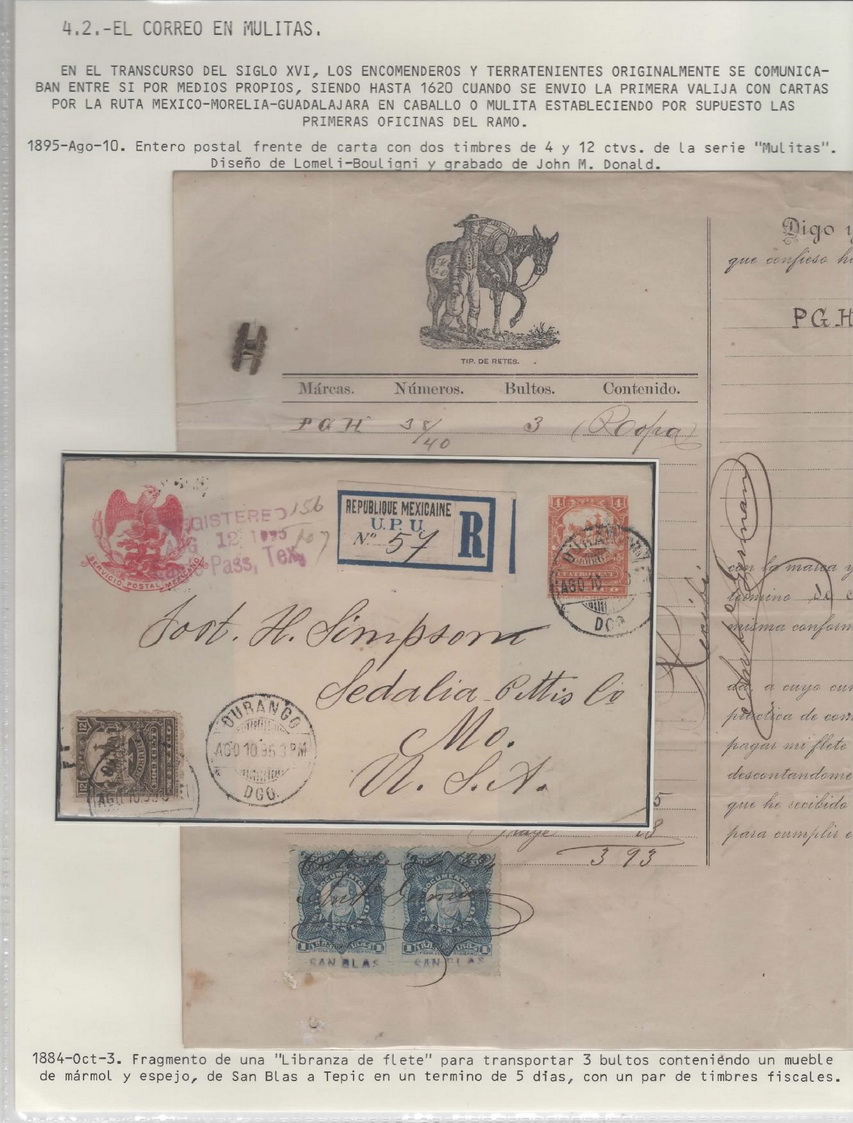 4.2.-EL CORREO EN MULITAS.
EN EL TRANSCURSO DEL SIGLO XVI, LOS ENCOMENDEROS Y TERRATENIENTES ORIGINALMENTE SE COMUNICA-
BAN ENTRE SI POR MEDIOS PROPIOS, SIENDO HASTA 1620 CUANDO SE ENVIO LA PRIMERA VALIJA CON CARTAS
POR LA RUTA MEXICO-MORELIA-GUADALAJARA EN CABALLO O MULITA ESTABLECIENDO POR SUPUESTO LAS
PRIMERAS OFICINAS DEL RAMO.
1895-Ago-10. Entero postal frente de carta con dos timbres de 4 y 12 ctvs. de la serie "Mulitas".
Diseño de Lomelí-Bouligni y grabado de John M. Donald.
Digo y
que confieso
PGH
TIP. DE RETES.
Márcas. Números. Bultos. Contenido.
PGH 38/40 3 (Ropa)
SERVICIO POSTAL MEXICANO
REGISTERED
12 1895
Pass, Tex.
156
107
REPUBLIQUE MEXICAINE
U.P.U.
Nº 57
R
4
AGO 10
DGO.
Jost. H. Simpson
Sedalia Pettis Co
Mo.
U. S. A.
12
DURANGO
AGO 10 95 3 PM
DGO.
AGO 10 95
Recibí
con la marca y
termino de
misma conform
da, a cuyo cum
práctica de com
pagar mi flete
descontandome
que he recibido
para cumplir
5
18
3 93
DOCUMENTOS
DOCUMENTOS
SAN BLAS SAN BLAS
1884-Oct-3. Fragmento de una "Libranza de flete" para transportar 3 bultos conteniéndo un mueble
de mármol y espejo, de San Blas a Tepic en un termino de 5 días, con un par de timbres fiscales.